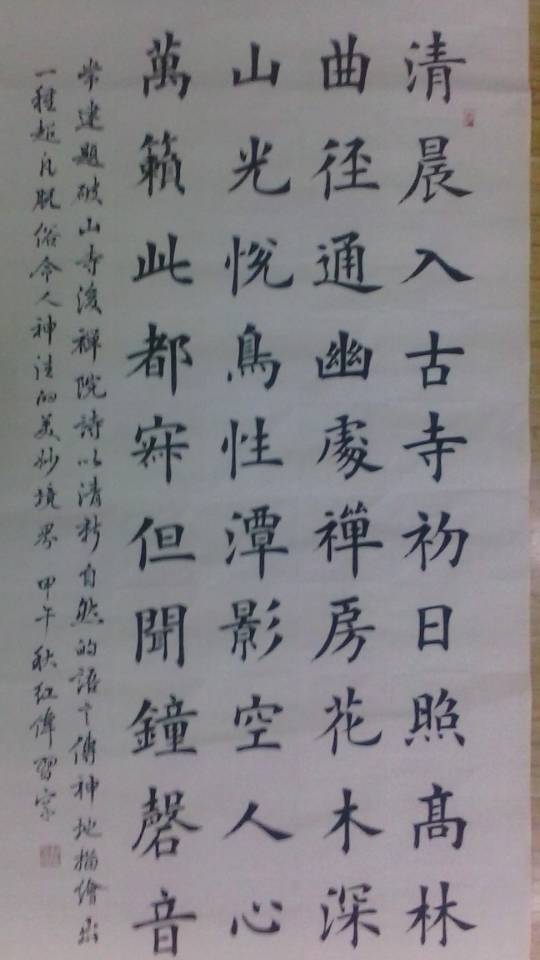 清晨入古寺初日照高林
曲径通幽處禪房花木深
山光悅鳥性潭影空人心
萬籟此都寂但聞鐘磬音
常建題破山寺後禪院詩以清新自然的語言傳神地描繪出
一種超凡脱俗令人神往的美妙境界 甲午秋红偉習字